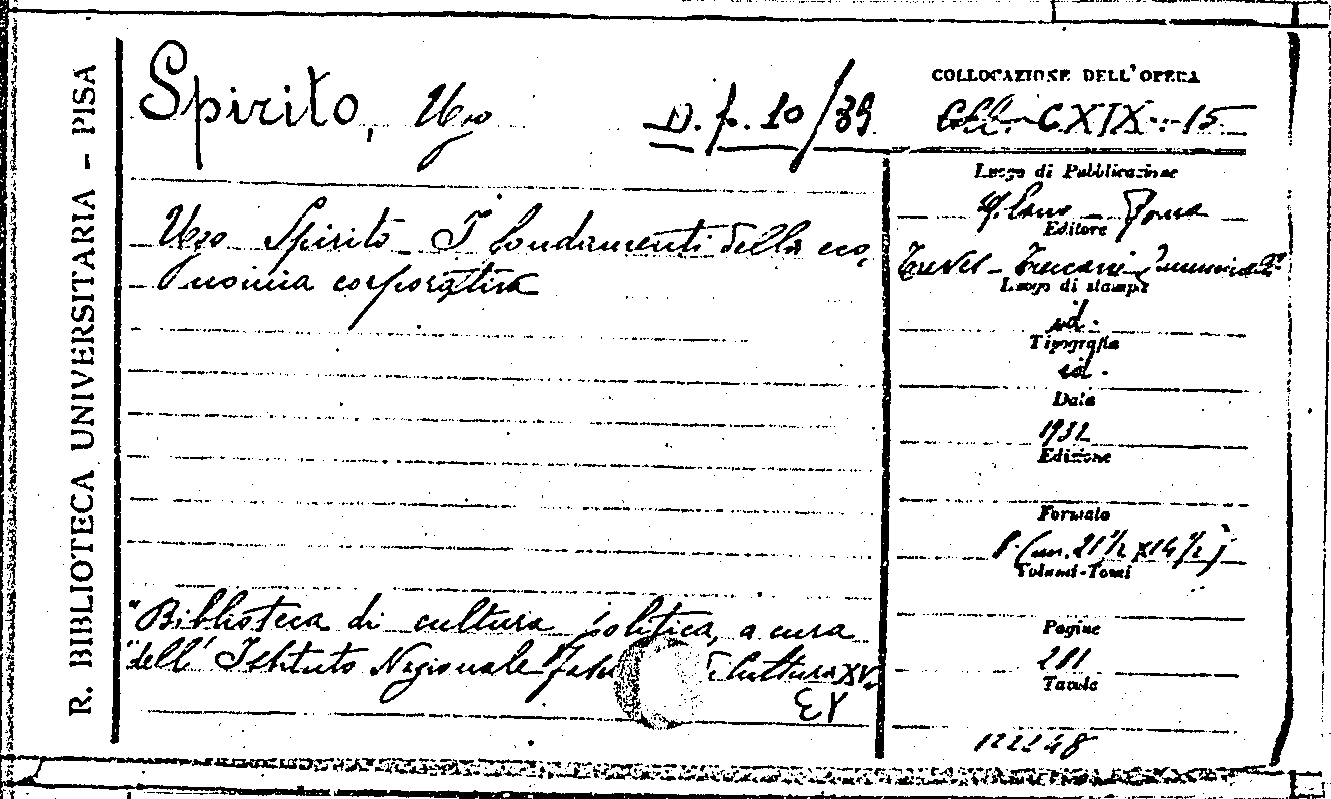 R. BIBLIOTECA UNIVERSITARIA - PISA
Spirito, Ugo
D. p. 10/39
COLLOCAZIONE DELL'OPERA
Coll. CXIX. 15
Luogo di Pubblicazione
Milano - Roma
Editore
Treves - Treccani - Tumminelli
Luogo di stampa
id.
Tipografia
id.
Data
1932
Edizione
Formato
8. (cm. 21 1/2 x 14 1/2)
Volumi-Tomi
Pagine
281
Tavole
122248
Ugo Spirito - I fondamenti della eco,
nomia corporativa
"Biblioteca di cultura politica, a cura
"dell' Istituto Nazionale Cultura XV.